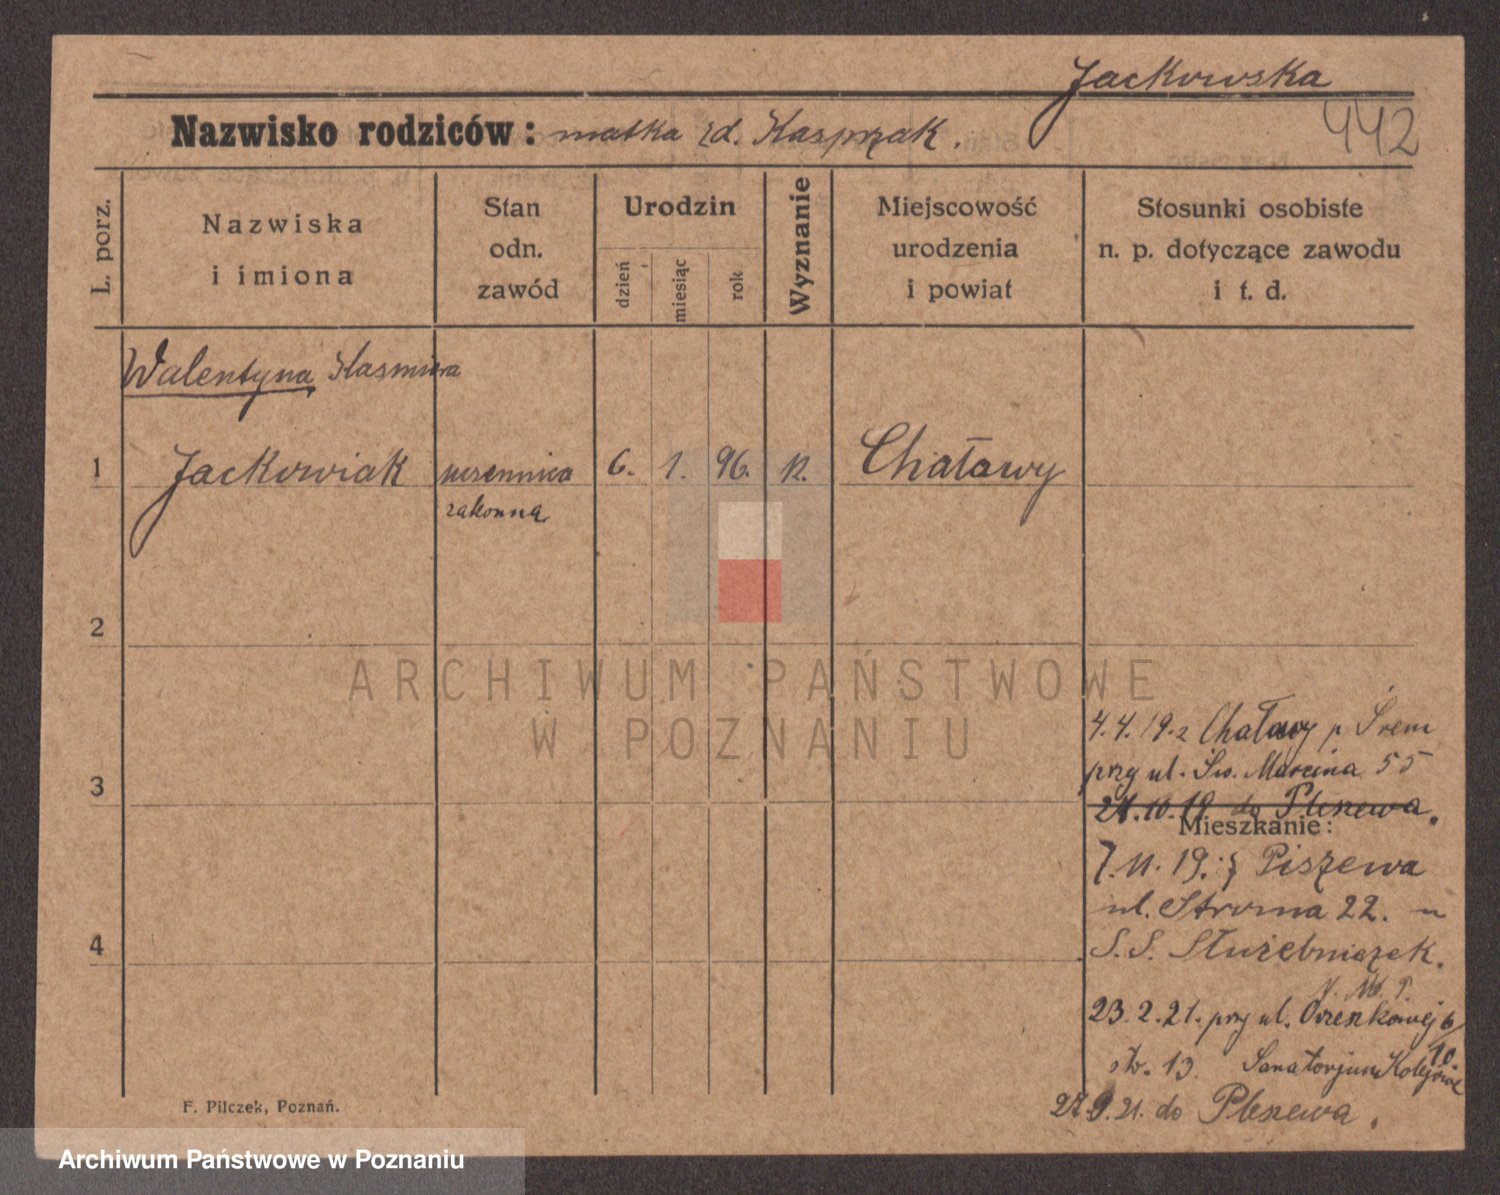 Jackowska
Nazwisko rodziców: matka zd. Kasprzak.
442
L. porz.
Nazwiska
i imiona
Stan
odn.
zawód
Urodzin
dzień
miesiąc
rok
Wyznanie
Miejscowość
urodzenia
i powiat
Stosunki osobiste
n. p. dotyczące zawodu
i t. d.
Walentyna Kasmira
1 Jackowiak uczennica 6. 1. 96. k. Chaławy
zakonna
2
ARCHIWUM PAŃSTWOWE
W POZNANIU
4.4.19. z Chaławy p Śrem
3
przy ul. Św. Marcina 55
24.10.19 do Pleszewa.
Mieszkanie:
7.11.19. z Piszewa
ul. Stroma 22. u
4
S.S. Służebniczek.
N. M. P.
23.2.21. przy ul. Orzeszkowej 6/10.
st. 13 Sanatorjum Kolejowe
27.9.21. do Pleszewa.
F. Pilczek, Poznań.
Archiwum Państwowe w Poznaniu